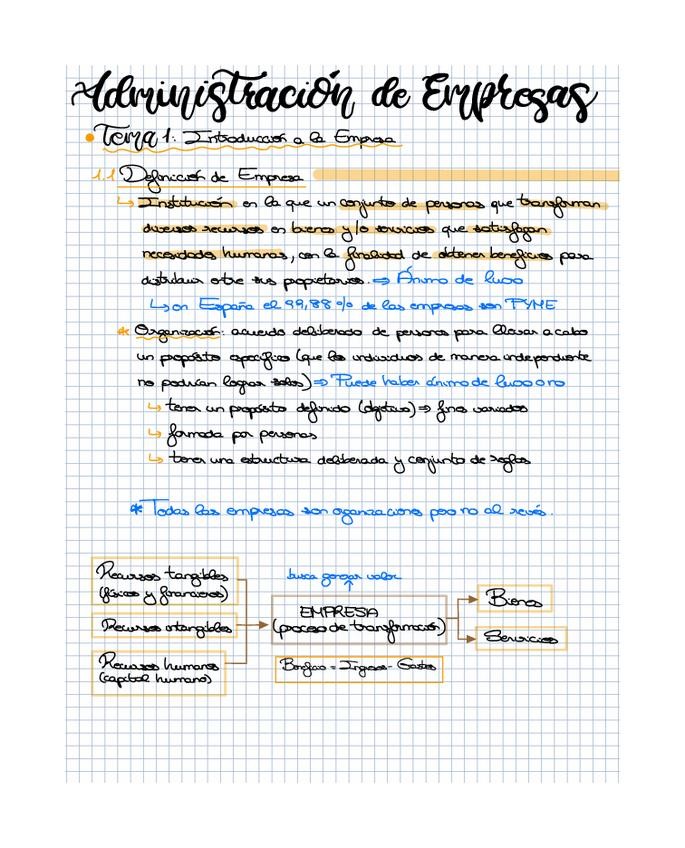 Administración de Empresas
• Tema 1: Introducción a la Empresa
1.1 Definición de Empresa
↳ Institución en la que un conjunto de personas que transforman
diversos recursos en bienes y/o servicios que satisfagan
necesidades humanas, con la finalidad de obtener beneficios para
distribuir entre sus propietarios. ⇒ Ánimo de lucro
↳ en España el 99,88% de las empresas son PYME
* Organización: acuerdo deliberado de personas para llevar a cabo
un propósito específico (que los individuos de manera independiente
no podrían lograr solos) ⇒ Puede haber ánimo de lucro o no
↳ tener un propósito definido (objetivo) ⇒ fines variados
↳ formada por personas
↳ tener una estructura deliberada y conjunto de reglas
* Todas las empresas son organizaciones pero no al revés.
Recursos tangibles
(físicos y financieros)
Recursos intangibles
Recursos humanos
(capital humano)
busca generar valor
↑
EMPRESA
(proceso de transformación)
Beneficio = Ingresos - Gastos
Bienes
Servicios